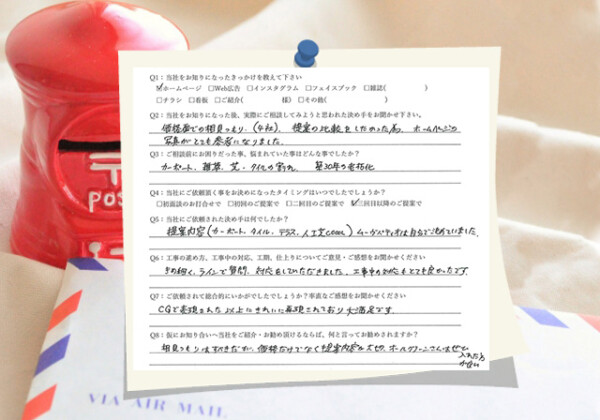 Q1：当社をお知りになったきっかけを教えて下さい
☑ホームページ □Web広告 □インスタグラム □フェイスブック □雑誌( )
□チラシ □看板 □ご紹介( 様) □その他( )
Q2：当社をお知りになった後、実際にご相談してみようと思われた決め手をお聞かせ下さい。
価格面での相見つもり。(4社) 提案の比較をしたかった為 ホームページの
写真がとても参考になりました。
Q3：ご相談前にお困りだった事、悩まれていた事はどんな事でしたか？
カーポート、雑草、芝、タイルの割れ 築30年の老朽化
Q4：当社にご依頼頂く事をお決めになったタイミングはいつでしたでしょうか？
□初面談のお打合せで □初回のご提案で □二回目のご提案で ☑三回目以降のご提案で
Q5：当社にご依頼された決め手は何でしたか？
提案内容(カーポート、タイル、テラス、人工芝cool) は自分で決めていました。
Q6：工事の進め方、工事中の対応、工期、仕上りについてご意見・ご感想をお聞かせください
ラインで質問、対応をしていただきました。工事中の対応もとても良かったです
Q7：ご依頼されて総合的にいかがでしたでしょうか？率直なご感想をお聞かせください
CGで表現された以上にきれいに再現されており大満足です。
Q8：仮にお知り合いへ当社をご紹介・お勧め頂けるならば、何と言ってお勧めされますか？
相見つもりはすべきだが、価格だけでなく提案内容が大切。
入れた方
が良い
POS
VIA AIR MAIL